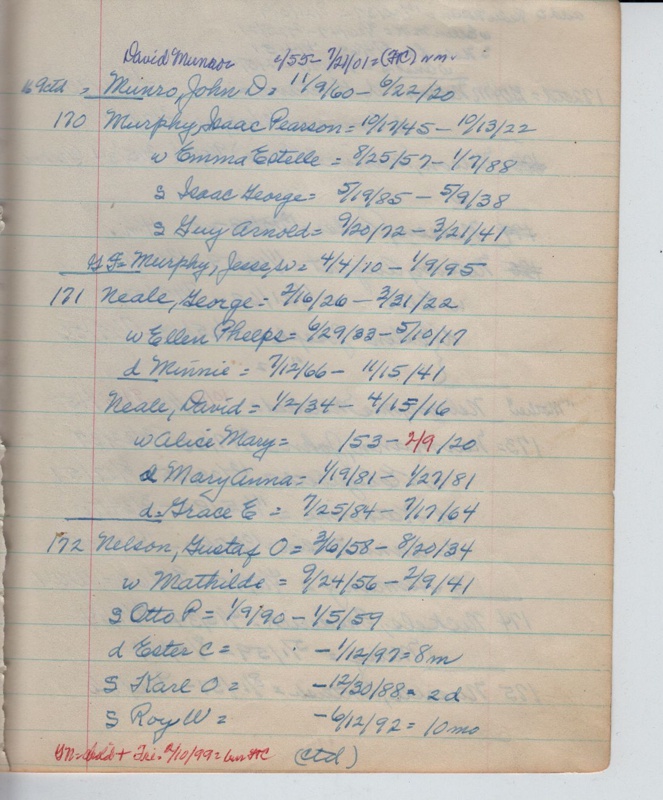 David Munro 2/55 - 7/21/01 = (FC) nm.
169ctd = Munro, John D = 11/9/60 - 6/22/20
170 Murphy, Isaac Pearson = 10/17/45 - 10/13/22
w Emma Estelle = 8/25/57 - 1/7/88
s Isaac George = 5/19/85 - 5/9/38
s Guy Arnold = 9/20/72 - 3/21/41
Murphy, Jesse W = 4/4/10 - 1/9/95
171 Neale, George = 2/16/26 - 3/31/22
w Ellen Phelps = 6/29/33 - 5/10/17
d Minnie = 7/12/66 - 11/15/41
Neale, David = 1/2/34 - 4/15/16
w Alice Mary = /53 - 2/9/20
d Mary Anna = 1/19/81 - 1/27/81
d = Grace E = 7/25/84 - 7/17/64
172 Nelson, Gustaf O = 3/6/58 - 8/20/34
w Mathilde = 9/24/56 - 2/9/41
s Otto P = 1/9/90 - 1/5/59
d Ester C = - 1/12/97 = 8m
s Karl O = - 12/30/88 = 2d
s Roy W = - 6/12/92 = 10mo
(ctd)